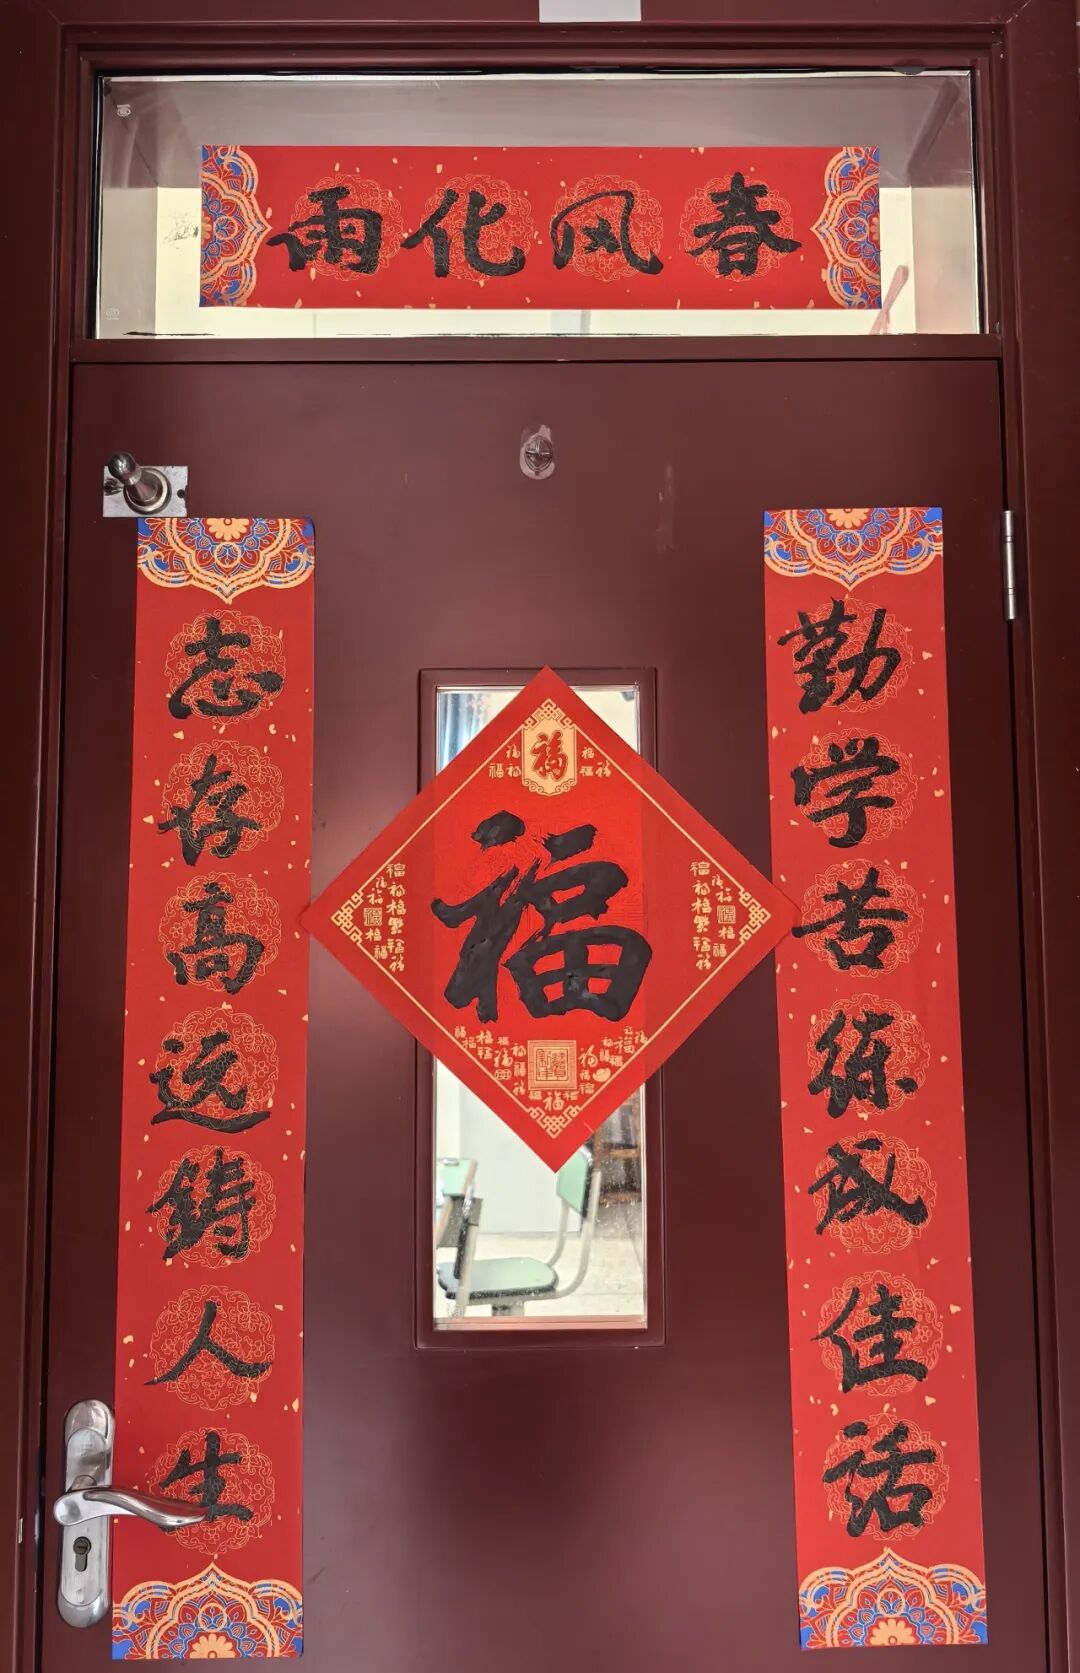 春风化雨
勤学苦练成佳话
志存高远铸人生
福
福